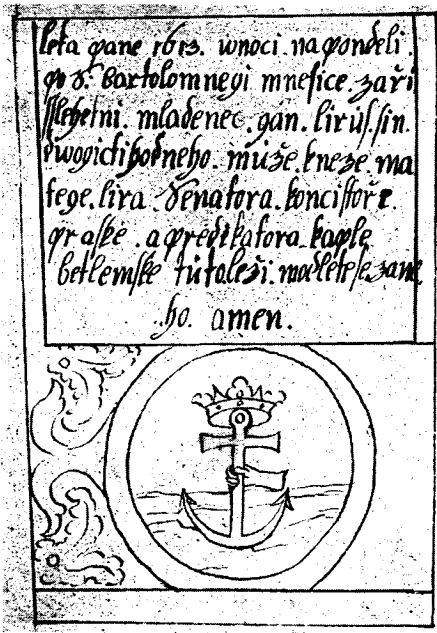 leta pane 1613. wnoci. na pondeli.
po S. bartolomnegi mnesice. zaři
sslehetni. mladenec. gan. lirus. sin.
dwogictihodneho. muže. kneze. ma
tege. lira. Senatora. koncistoře.
praske. a predikatora. kaple
betlemske tuto leži. modlete se. zane
ho. amen.